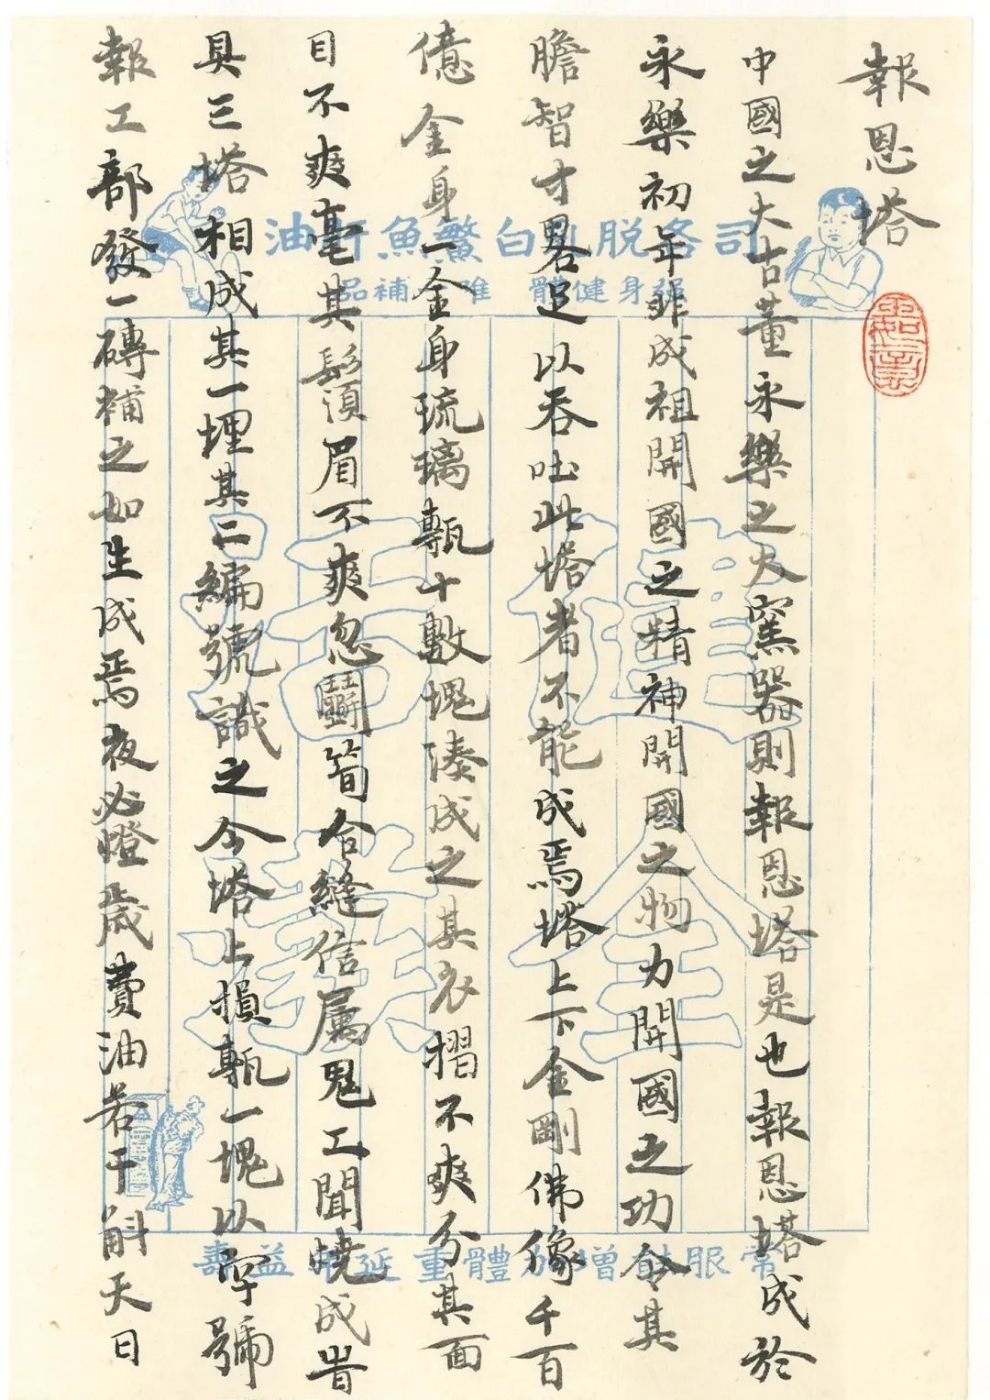 報恩塔
中國之大古董永樂之大窯器則報恩塔是也報恩塔成於
永樂初年非成祖開國之精神開國之物力開國之功令其
膽智才畧足以吞吐此塔者不能成焉塔上下金剛佛像千百
億金身一金身琉璃甎十數塊湊成之其衣摺不爽分其面
目不爽毫其鬚眉不爽忽鬭筍合縫信屬鬼工聞燒成昔
具三塔相成其一埋其二編號識之今塔上損甎一塊以字號
報工部發一磚補之如生成焉夜必燈歲費油若干斛天日
司各脫乳白鰵魚肝油
強身健體 唯 補品
健全
常服 增加體重延年益壽